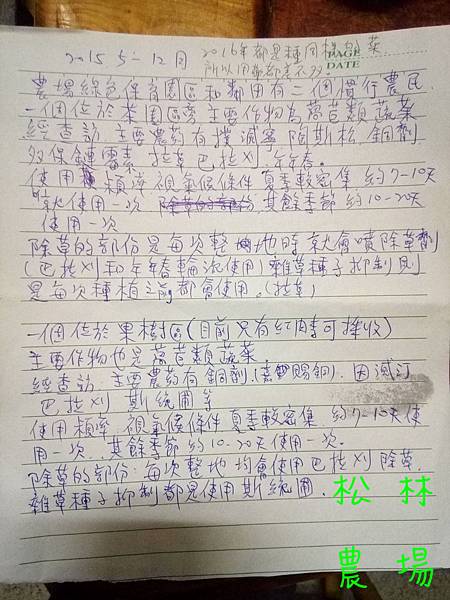 2015 5-12月
2016年都是種同樣的菜
所以用藥都差不多.
PAGE
DATE
農場綠色保育園區和鄰田有二個慣行農民
一個位於茶園區旁主要作物為萵苣類蔬菜
經查訪 主要農藥有撲滅寧 陶斯松, 銅劑
多保鏈黴素 拉草 巴拉刈 年年春.
使用頻率視氣候條件 夏季較密集 約7-10天
就使用一次 其餘季節約10-20天
使用一次
除草的部份是每次整地時就會噴除草劑
(巴拉刈和年年春輪流使用) 雜草種子抑制則
是每次種植之前都會使用.(拉草)
一個位於果樹區(目前只有紅肉李可採收)
主要作物也是萵苣類蔬菜
經查訪 主要農藥有銅劑(嘉賜銅). 因滅汀
巴拉刈 斯統圃等
使用頻率 視氣候條件 夏季較密集 約7-10天使
用一次. 其餘季節約10-20天使用一次.
除草的部份: 每次整地均會使用巴拉刈除草.
雜草種子抑制都是使用斯統圃.
松林
農場